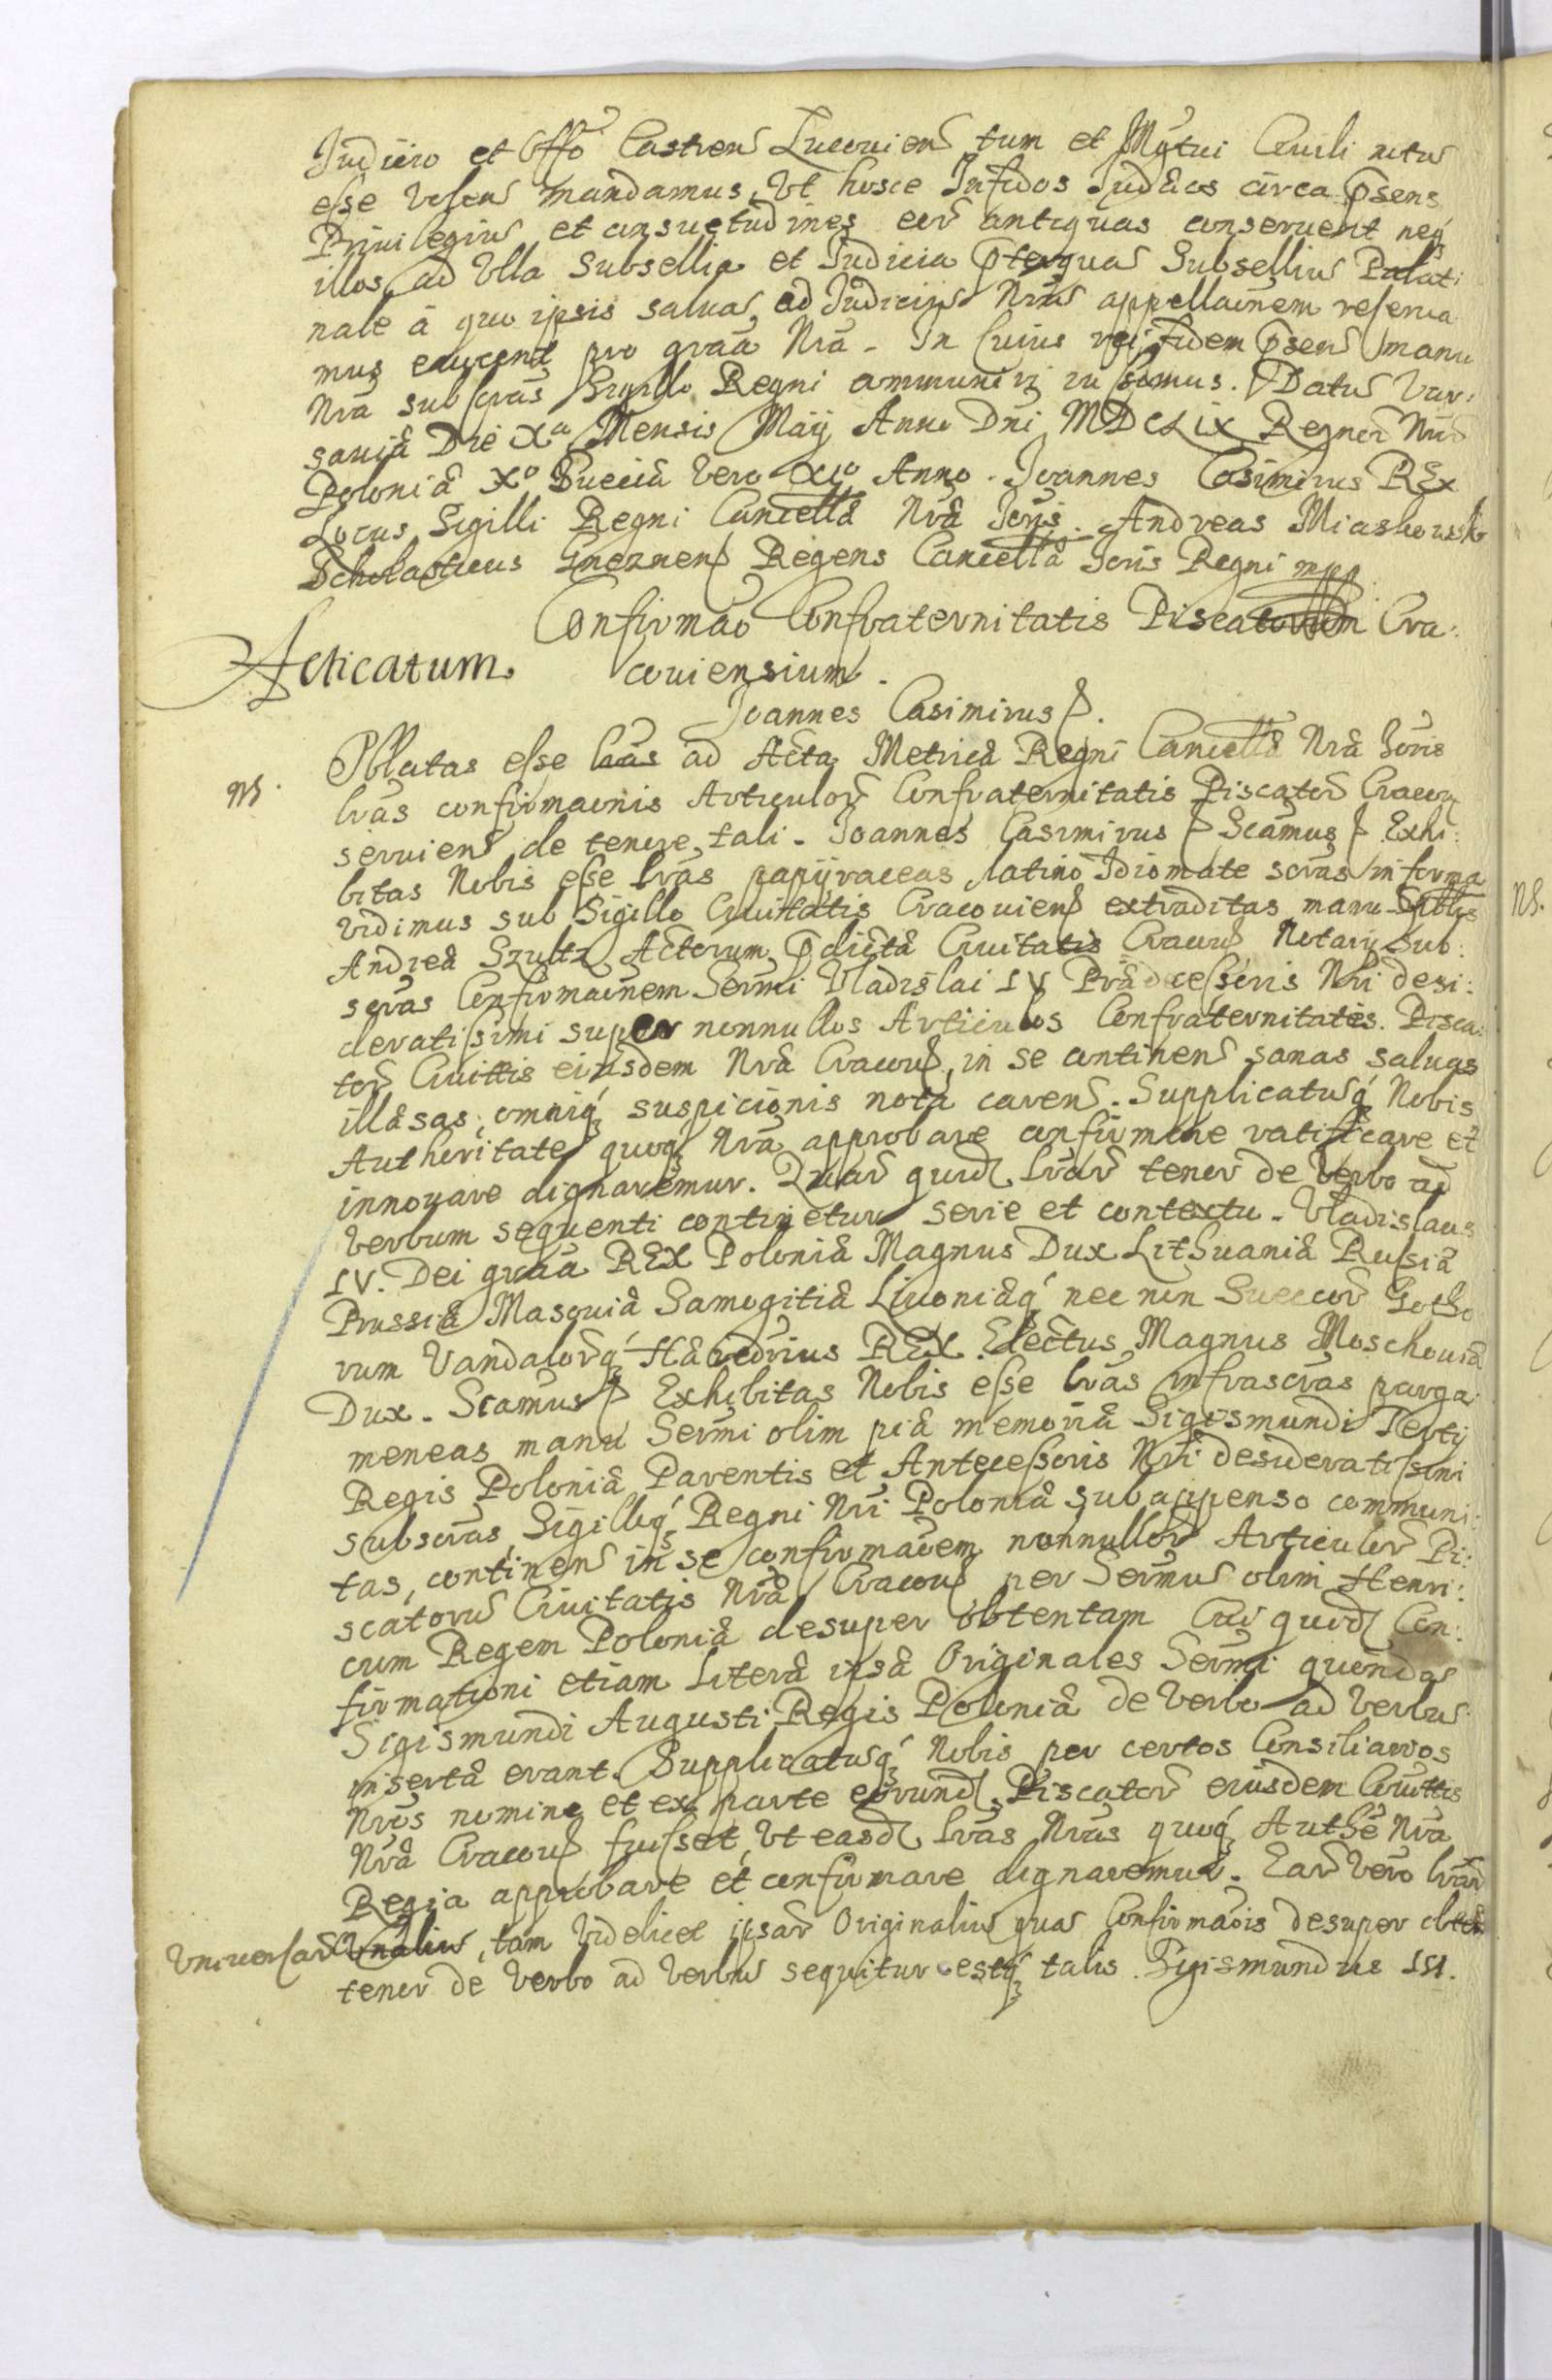 Judicio et Offo Castren Lucouien tum et Mgtui Ciuili nctus
esse volens mandamus, Vt hosce Infidos Judæos circa psens
Priuilegiu et consuetudines eor antiquas conseruent neq
illos ad Vlla Subsellia et Judicia pterquas Subselliu Palati
nale á quo ipsis saluas ad Judicijs Nrus appellaönem reserua
mus euocent pro graa Nra. In Cuius rei fidem psens manu
Nra subscras Sigillo Regni communiri iussimus. Datus Var:
sauiæ Die Xa Mensis Maij Anno Dni MDCLIX Regnor Nror
Poloniæ Xo Sueciæ vero XIo Anno. Joannes Casimirus REx
Locus Sigilli Regni Cancellæ Nræ Joris. Andreas Miaskowski
Scholasticus Gneznens Regens Cancellæ Joris Regni mpp
Confirmao Confraternitatis Piscatorum Cra:
Acticatum. couiensium.
Joannes Casimirus.
Oblatas esse has ad Acta Metricæ Regni Cancellæ Nræ Joris
NS.
lras confirmaonis Articulor Confraternitatis Piscator Cracou
seruiens de tenore tali. Joannes Casimirus Scamus Exhi:
bitas Nobis esse lras papijraceas latino Idiomate scras in forma
vidimus sub Sigillo Ciuitatis Cracouiens extraditas manu Gbtis
Andreæ Szultz Actorum pdictæ Ciuitatis Cracou Notarij Sub:
scras Confirmaönem Sermi Vladislai IV Prædecessoris Nri desi:
deratissimi super nonnullos Articulos Confraternitatis Pisca:
tor Ciuittis eiusdem Nræ Cracou, in se continens sanas saluas
illæsas, omniq suspicionis notâ carens. Supplicatusq Nobis
Authoritate quoq Nrâ approbare confirmare ratificare et
innouare dignaremur. Quar quid lrar tenor de verbo ad
verbum sequenti continetur serie et contextu. Vladislaus
IV. Dei graa REX Poloniæ Magnus Dux Lithuaniæ Russiæ
Prussiæ Masouiæ Samogitiæ Liuoniæq nec non Suecor Gotho
rum Vandalorq Hæreditrius REX. Electus Magnus Moschouiæ
Dux. Scamus Exhibitas Nobis esse lras infrascras parga:
meneas manu Sermi olim piæ memoriæ Sigismundi Tertij
Regis Poloniæ Parentis et Antecessoris Nri desideratissimi
subscras, Sigilloq Regni Nri Poloniæ subappenso communi:
tas, continens in se confirmaoem nonnullor Articulor Pi:
scatorus Ciuitatis Nræ Cracou per Sermus olim Henri:
cum Regem Poloniæ desuper obtentam Cui quid Con:
firmationi etiam Literæ ipsæ Originales Sermi quondas
Sigismundi Augusti Regis Poloniæ de verbo ad verbus
insertæ erant. Supplicatusq Nobis per certos Consiliarios
Nros nomine et ex parte eorund Piscator eiusdem Ciuittis
Nræ Cracou fuisset, Vt easd lras Nras quoq Authe Nra
Regia approbare et confirmare dignaremur. Ear vero lrar
Vniuersar tam videlicet ipsar Originaliu quas Confirmaois desuper obten
tenor de verbo ad verbus sequitur estq talis. Sigismundus III.
NS.